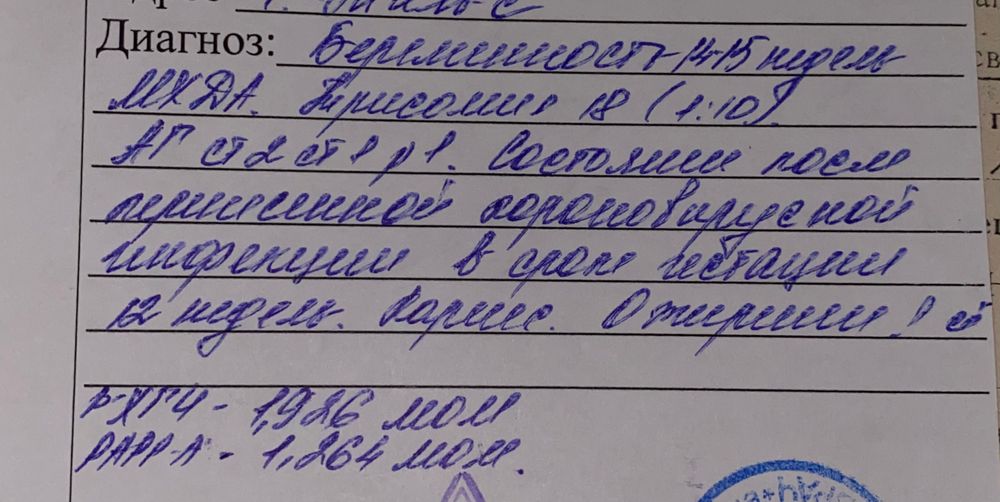 Диагноз: Беременность 14-15 недель
МХДА. Трисомия 18 (1:10).
АГ ст 2 ст 1 р 1. Состояние после
перенесенной короновирусной
инфекции в сроке гестации
12 недель. Кариес. Ожирение 1 ст
β-ХГЧ - 1,926 МОМ
PAPP-A - 1,264 МОМ.